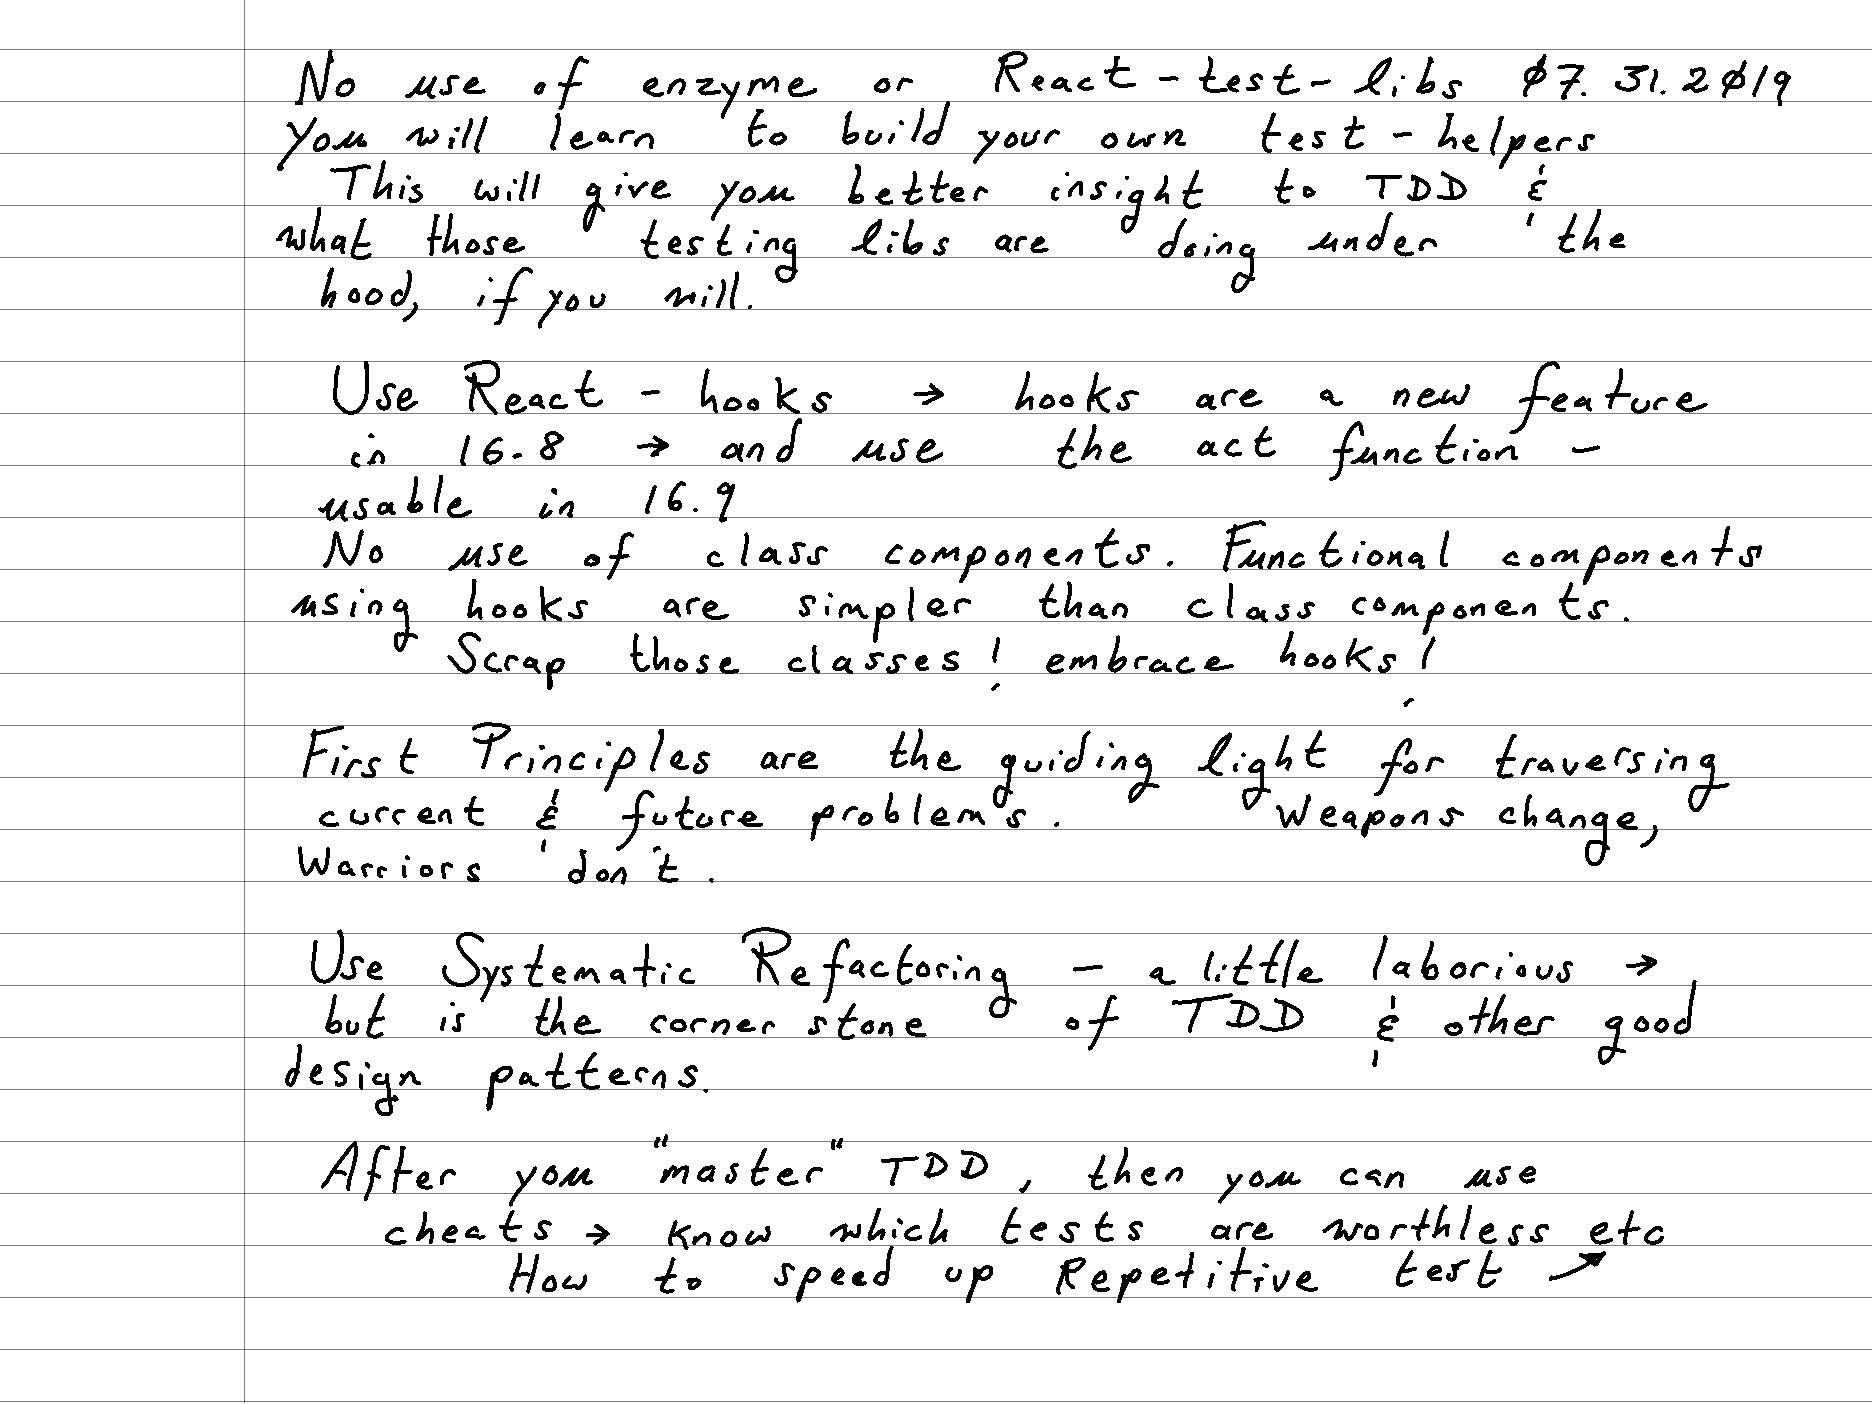 No use of enzyme or React-test-libs 07.31.2019
You will learn to build your own test-helpers
This will give you better insight to TDD &
what those testing libs are doing under the
hood, if you will.
Use React-hooks → hooks are a new feature
in 16.8 → and use the act function -
usable in 16.9
No use of class components. Functional components
using hooks are simpler than class components.
Scrap those classes! embrace hooks!
First Principles are the guiding light for traversing
current & future problem's. Weapons change,
Warriors don't.
Use Systematic Refactoring - a little laborious →
but is the corner stone of TDD & other good
design patterns.
After you "master" TDD, then you can use
cheats → know which tests are worthless etc
How to speed up Repetitive test ↗